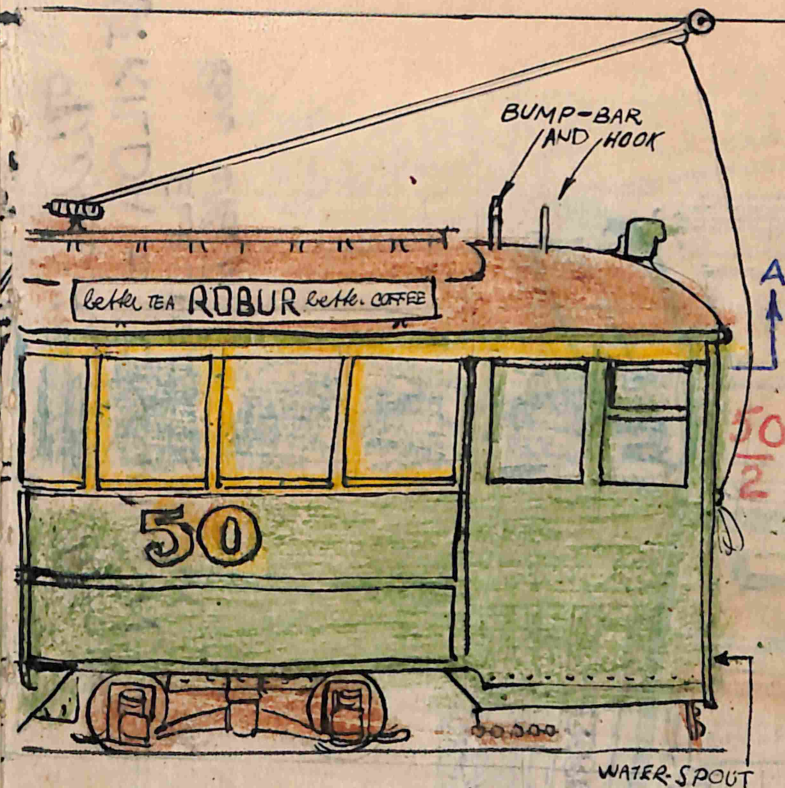 BUMP-BAR
AND HOOK
better TEA ROBUR bette. COFFEE
A
50
50
2
WATER-SPOUT